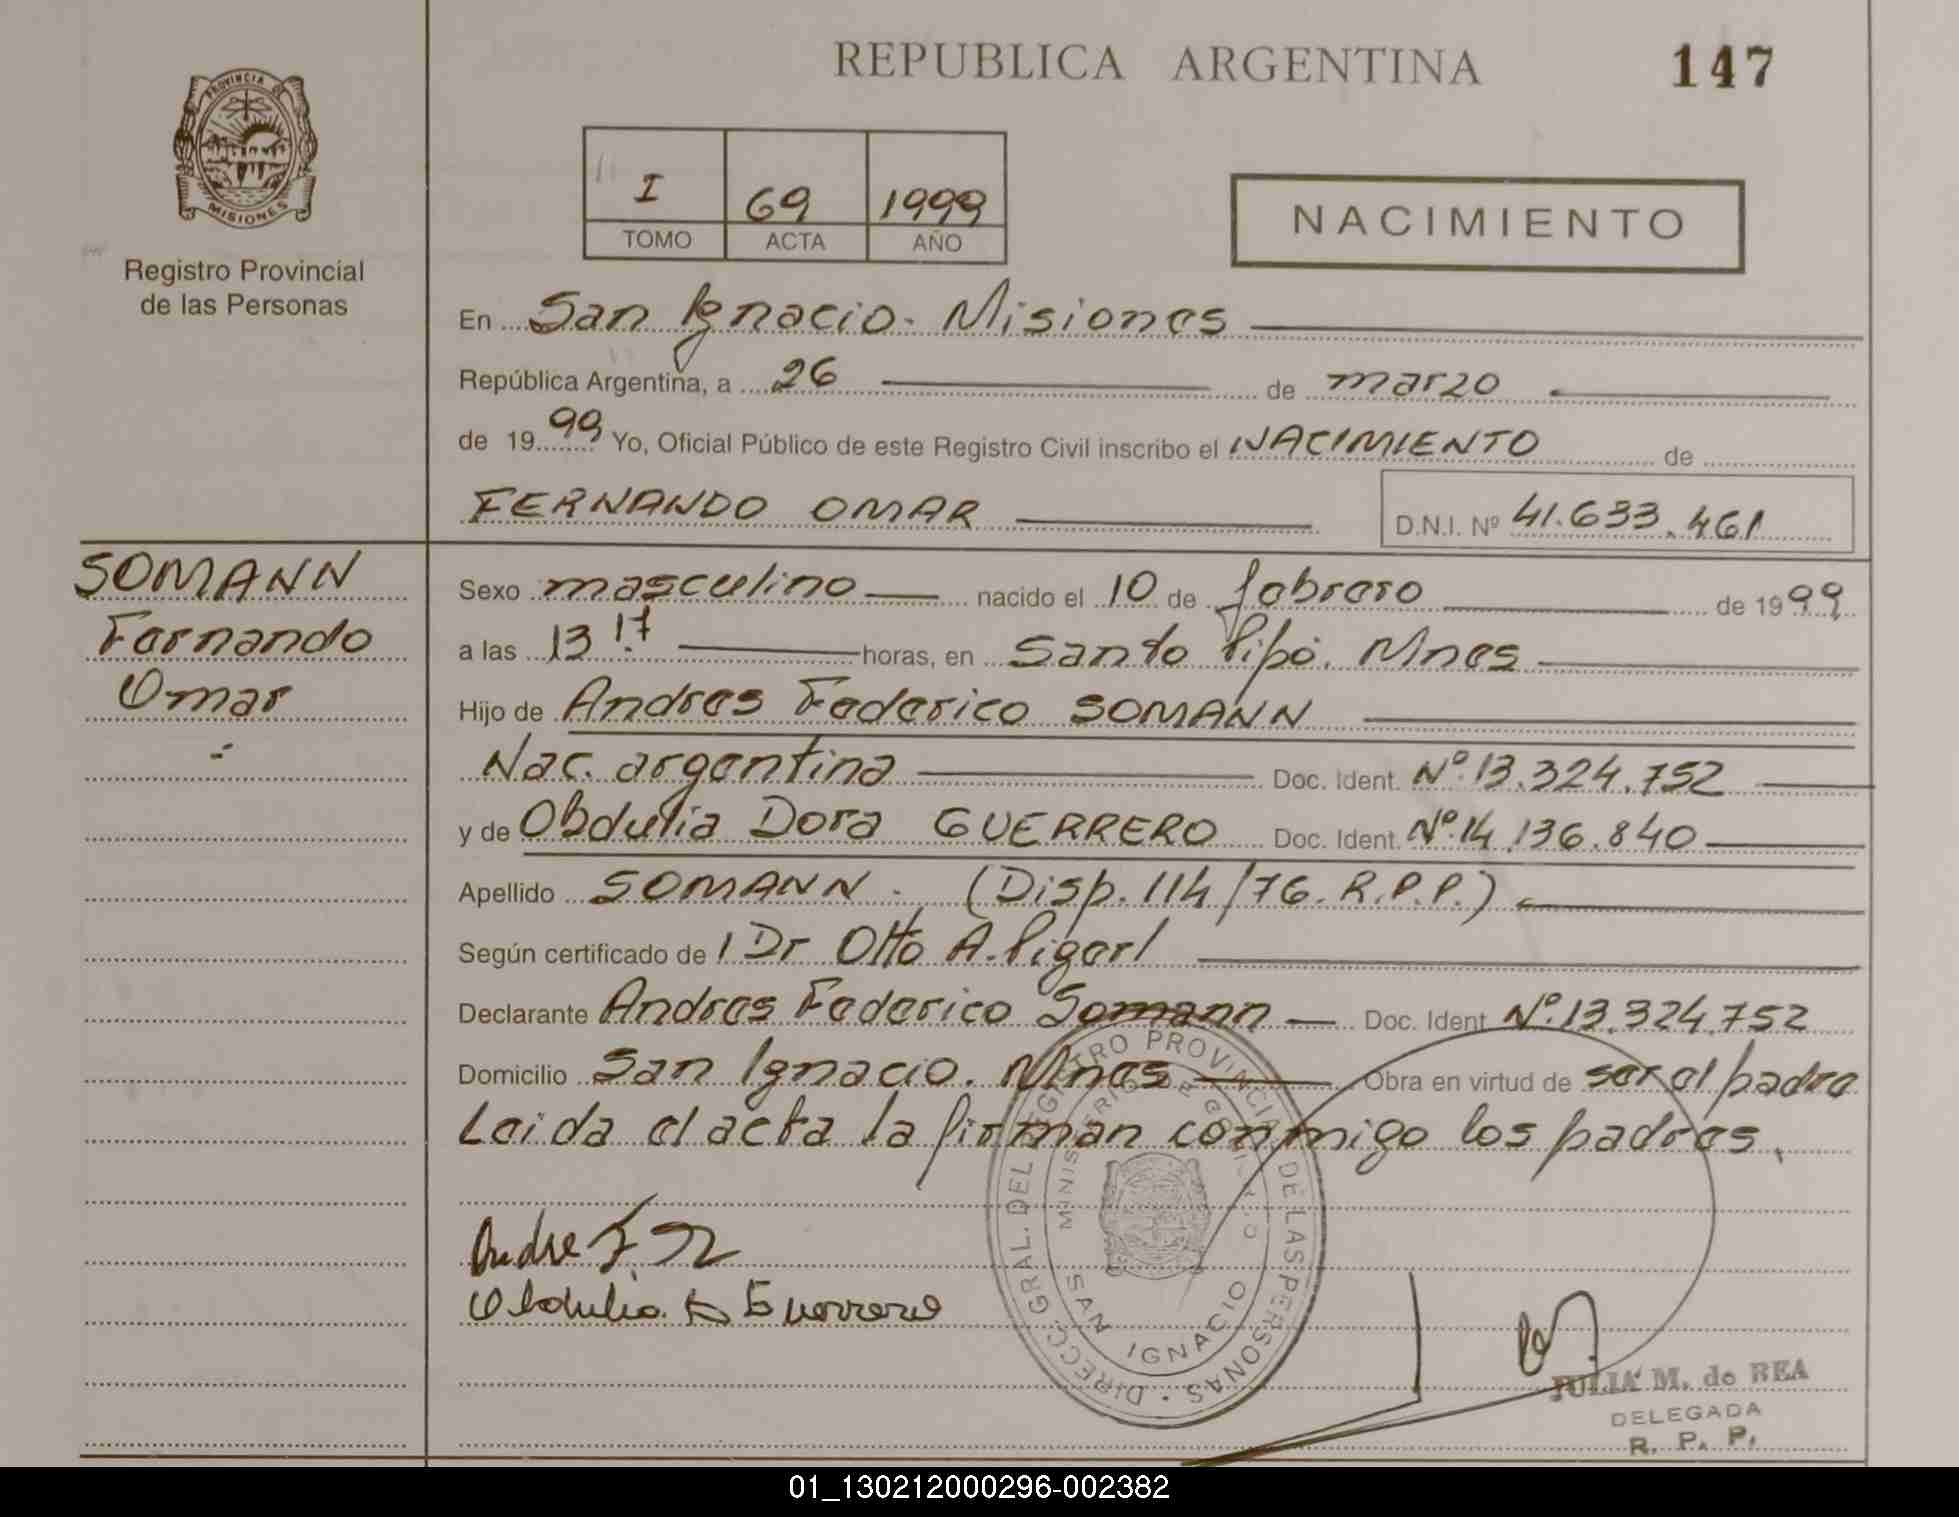 REPUBLICA ARGENTINA
147
PROVINCIA DE
MISIONES
Registro Provincial
de las Personas
I 69 1999
TOMO ACTA AÑO
NACIMIENTO
En San Ignacio. Misiones
República Argentina, a 26 de marzo
de 1999 Yo, Oficial Público de este Registro Civil inscribo el NACIMIENTO de
FERNANDO OMAR D.N.I. Nº 41.633.461
SOMANN
Fernando
Omar
Sexo masculino nacido el 10 de febrero de 1999
a las 13 17 horas, en Santo Pipó. Mnes
Hijo de Andres Federico SOMANN
Nac. argentina Doc. Ident. Nº 13.324.752
y de Obdulia Dora GUERRERO Doc. Ident. Nº 14.136.840
Apellido SOMANN. (Disp. 114/76. R.P.P.)
Según certificado de l Dr Otto A. Pigerl
Declarante Andres Federico Somann Doc. Ident Nº 13.324.752
Domicilio San Ignacio. Mnes Obra en virtud de ser el padre
Leida el acta la firman conmigo los padres.
Andre F.
Obdulia D Guerrero
DIRECC. GRAL. DEL REGISTRO PROVINCIAL DE LAS PERSONAS
MINISTERIO DE GOBIERNO
SAN IGNACIO
JULIA M. de REA
DELEGADA
R. P. P.
01_130212000296-002382